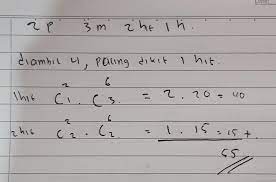 2 p 3 m 2 ht 1 h.
diambil 4, paling dikit 1 hit.
1hit C₁² . C₃⁶ = 2 . 20 = 40
2hit C₂² . C₂⁶ = 1 . 15 = 15 +
55